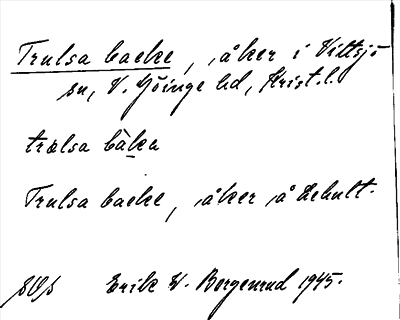 Trulsa backe, åker i Vittsjö
sn, V. Göinge hd, Krist. l.
trælsa bàka
Trulsa backe, åker å Ekhult.
Erik W. Bergenrud 1945.